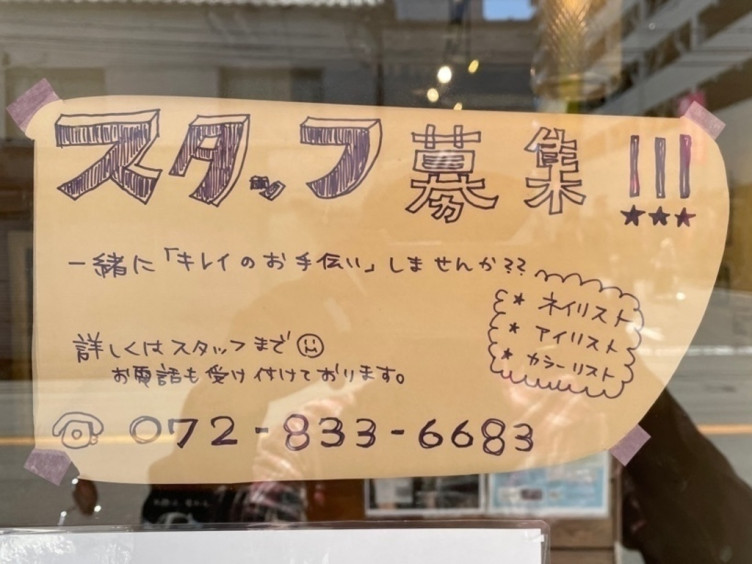 スタッフ募集!!!
★★★
一緒に「キレイのお手伝い」しませんか??
★ ネイリスト
★ アイリスト
★ カラーリスト
詳しくはスタッフまで
お電話も受け付けております。
072-833-6683